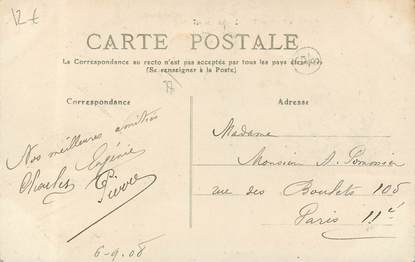 12 €
CARTE POSTALE
La Correspondance au recto n'est pas acceptée par tous les pays étrangers
(Se renseigner à la Poste)
77
Correspondance
Adresse
Nos meilleures amitiés
Charles Eugénie
Pierre
6-9.08
Madame
Monsieur A. Pommier
rue des Boulets 105
Paris 11e